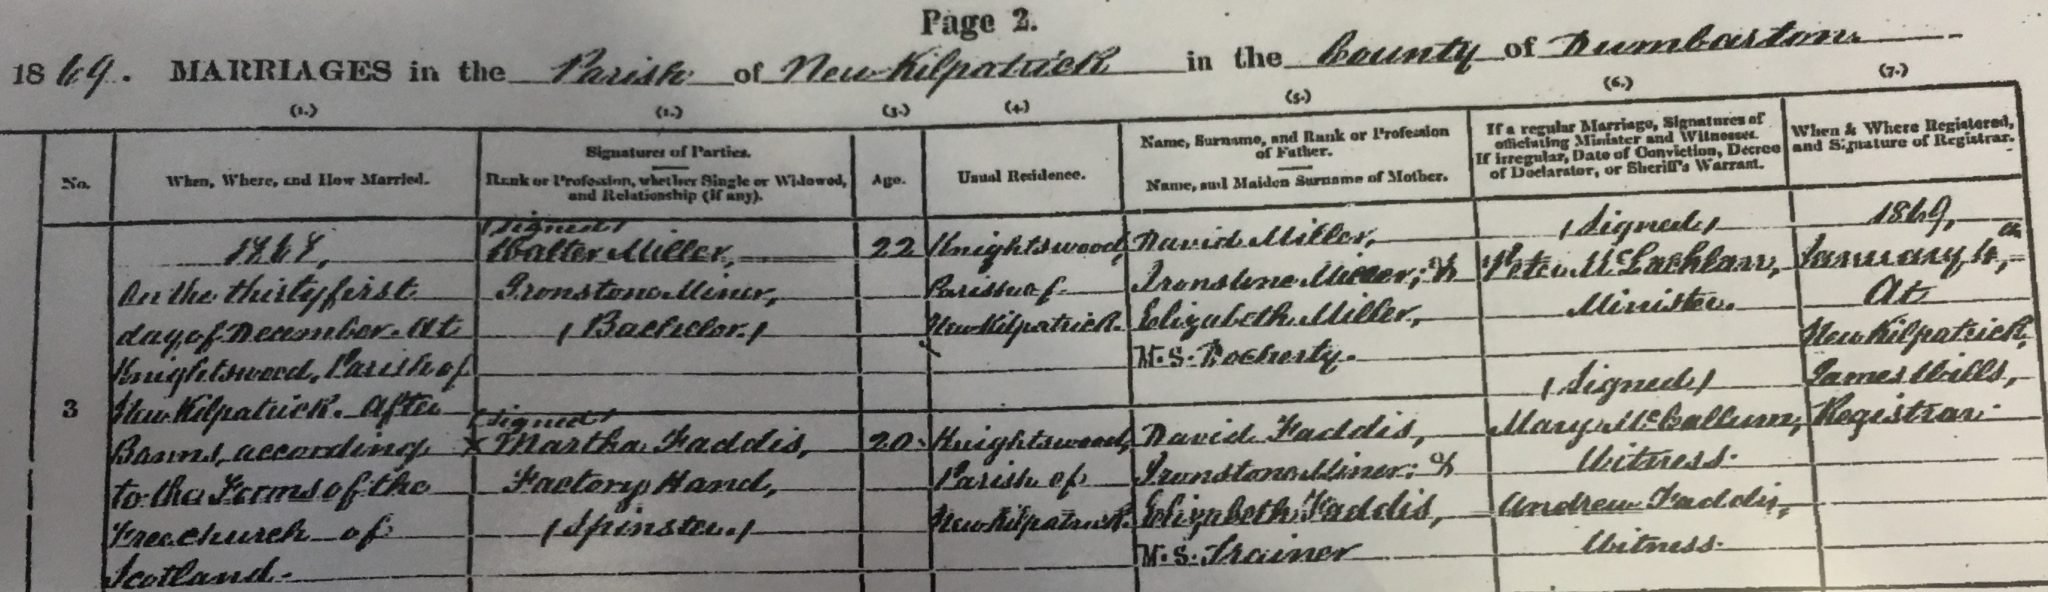 Page 2.
1869. MARRIAGES in the Parish of New Kilpatrick in the County of Dumbarton
(1.) (2.) (3.) (4.) (5.) (6.) (7.)
No.
When, Where, and How Married.
Signatures of Parties.
Rank or Profession, whether Single or Widowed,
and Relationship (if any).
Age.
Usual Residence.
Name, Surname, and Rank or Profession
of Father.
Name, and Maiden Surname of Mother.
If a regular Marriage, Signatures of
officiating Minister and Witnesses.
If irregular, Date of Conviction, Decree
of Declarator, or Sheriff's Warrant.
When & Where Registered,
and Signature of Registrar.
3
1868,
On the thirty first
day of December. At
Knightswood, Parish of
New Kilpatrick. After
Banns, according
to the Forms of the
Free Church of
Scotland.
(Signed)
Walter Miller,
Ironstone Miner,
(Bachelor.)
(Signed)
X Martha Faddis,
Factory Hand,
(Spinster.)
22
20.
Knightswood,
Parish of
New Kilpatrick.
Knightswood,
Parish of
New Kilpatrick.
David Miller,
Ironstone Miner; &
Elizabeth Miller,
M.S. Docherty.
David Faddis,
Ironstone Miner; &
Elizabeth Faddis,
M.S. Trainer
(Signed)
Peter McLachlan,
Minister.
(Signed)
Mary McCallum,
Witness.
Andrew Faddis,
Witness.
1869,
January 4,
At
New Kilpatrick,
James Wills,
Registrar.